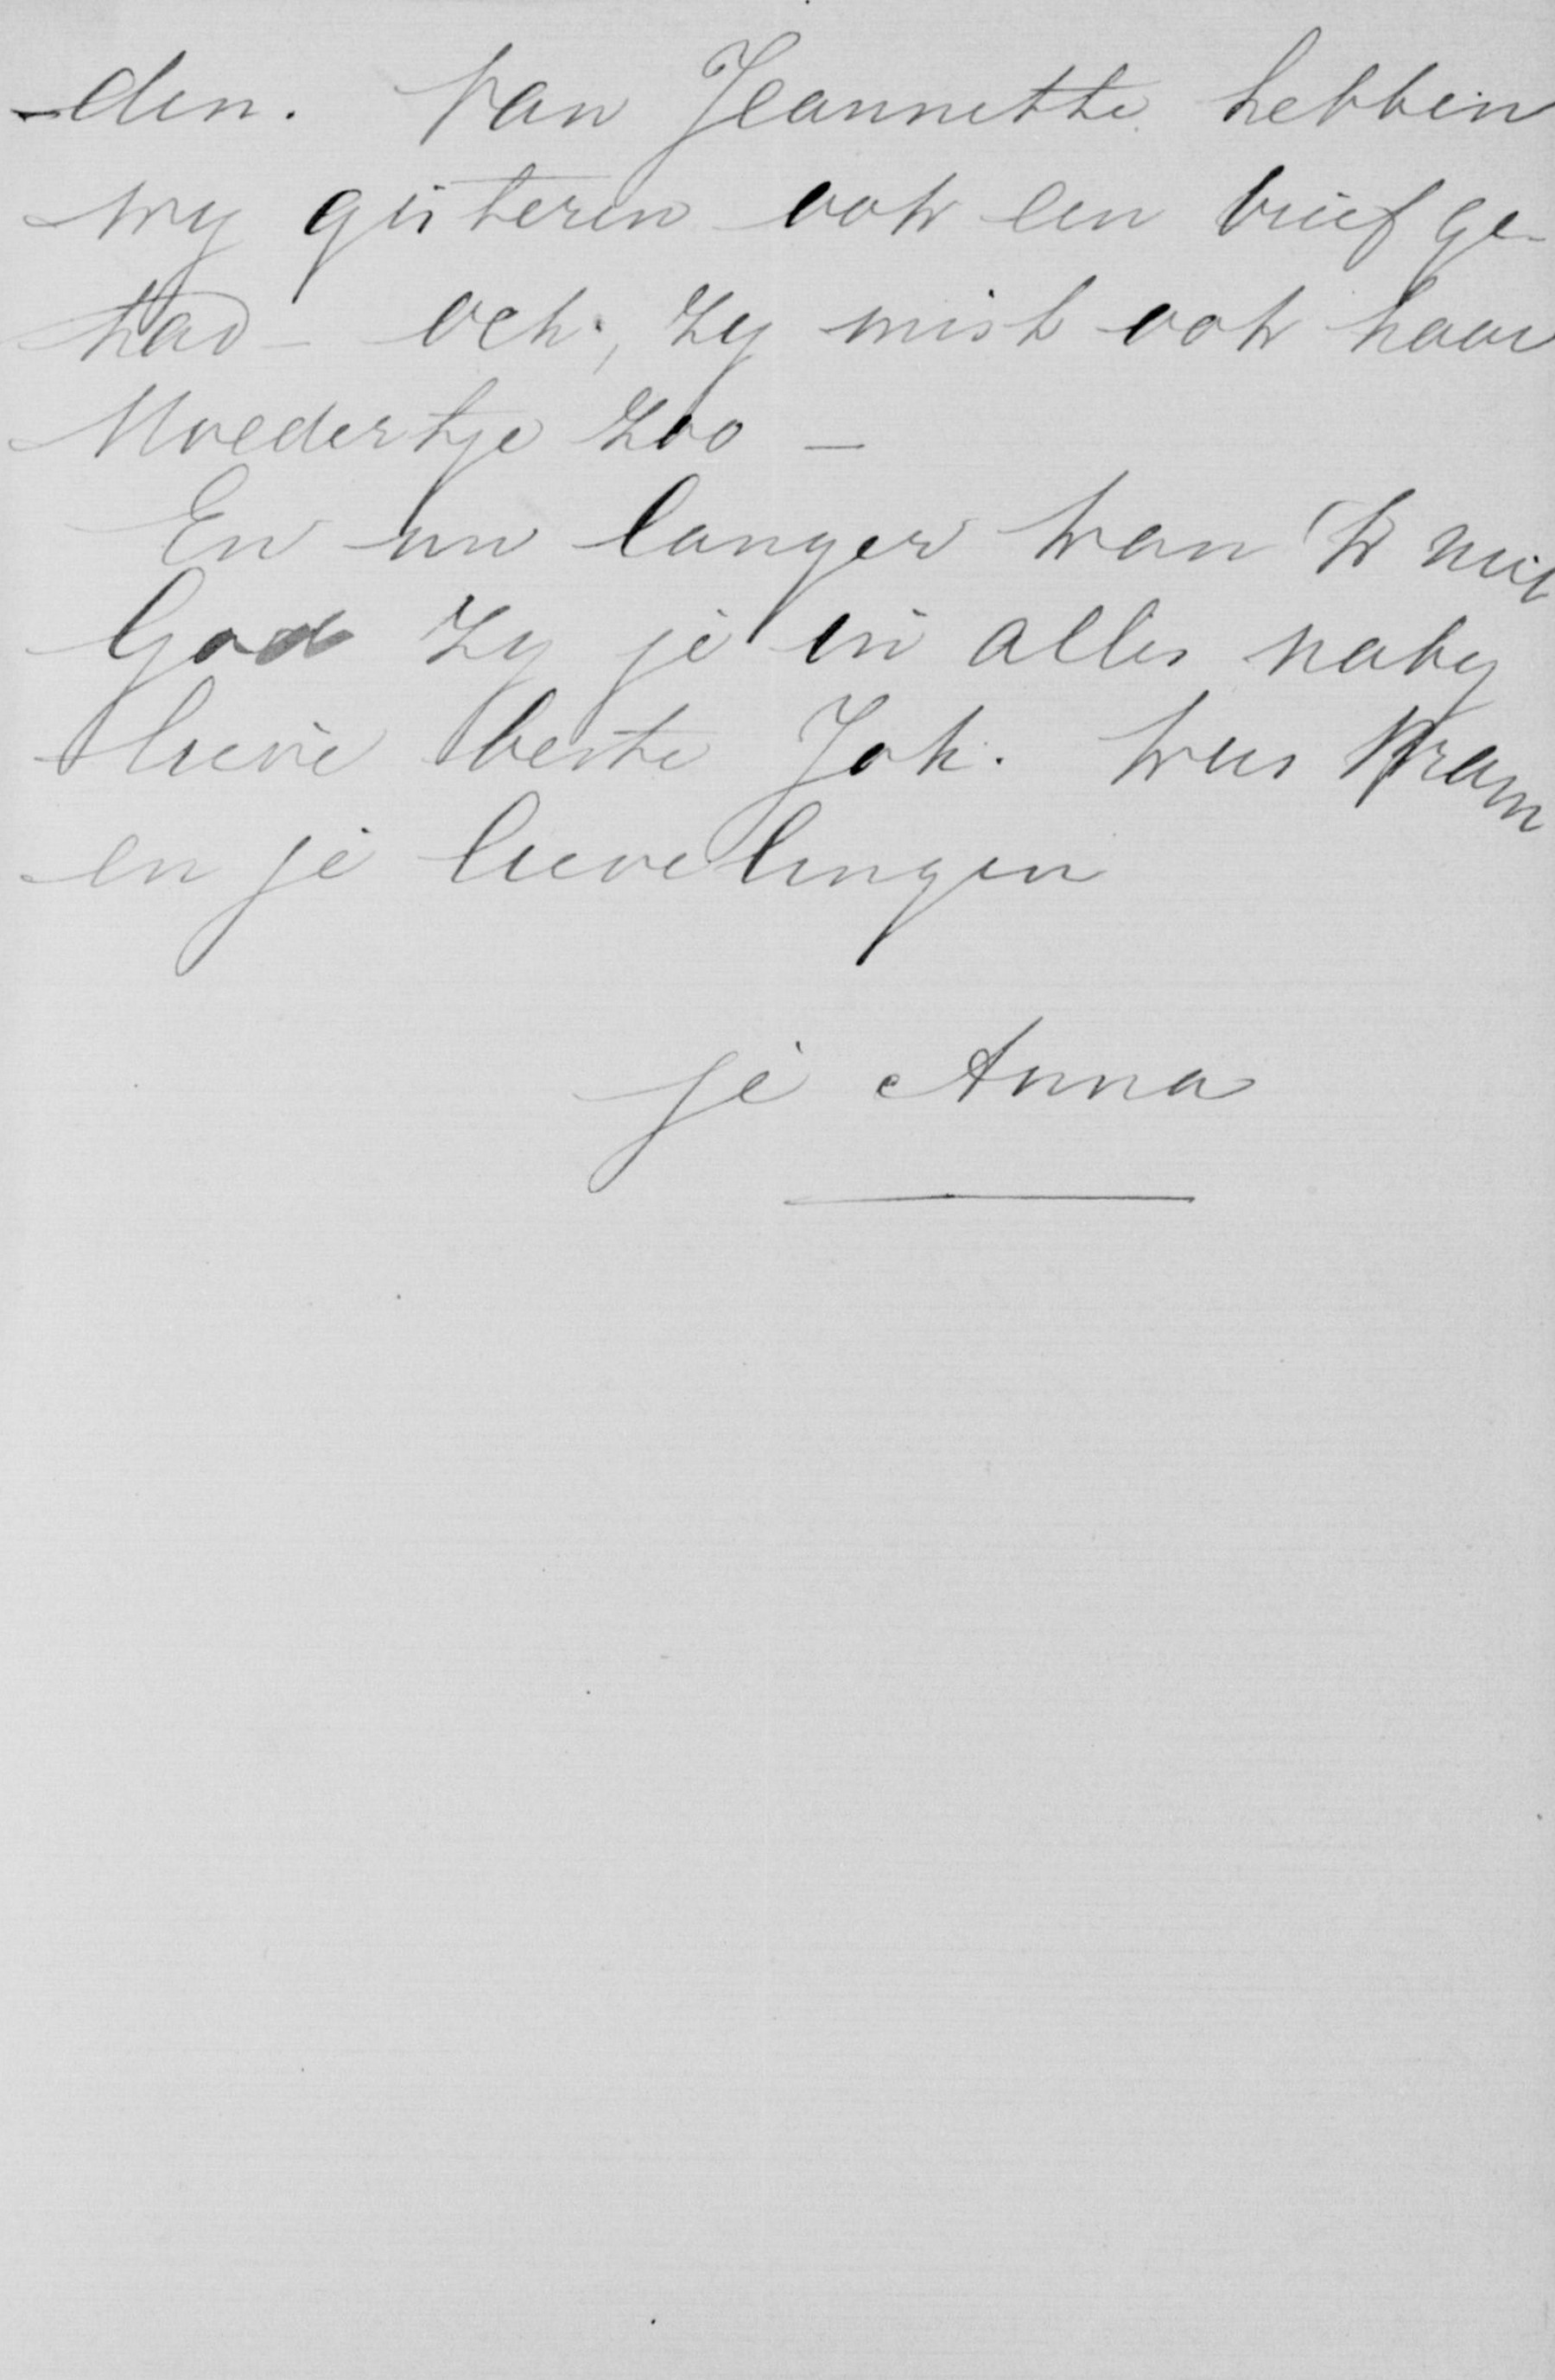 -den. Van Jeannette hebben
wy gisteren ook een brief ge-
had - och, zy mist ook haar
Moedertje zoo -
En nu langer kan 'k niet
God zy je in alles naby
lieve beste Joh. kus Bram
en je lievelingen
je Anna